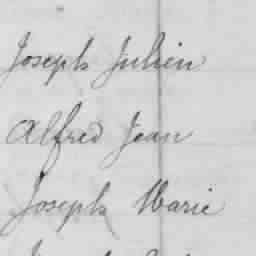 Joseph Julien
Alfred Jean
Joseph Marie